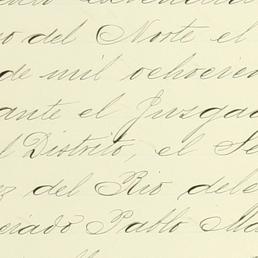 o del Norte el
de mil ochocien
ante el Juzgad
l Distrito, el Se
ez del Rio dele
ciado Pablo Ma